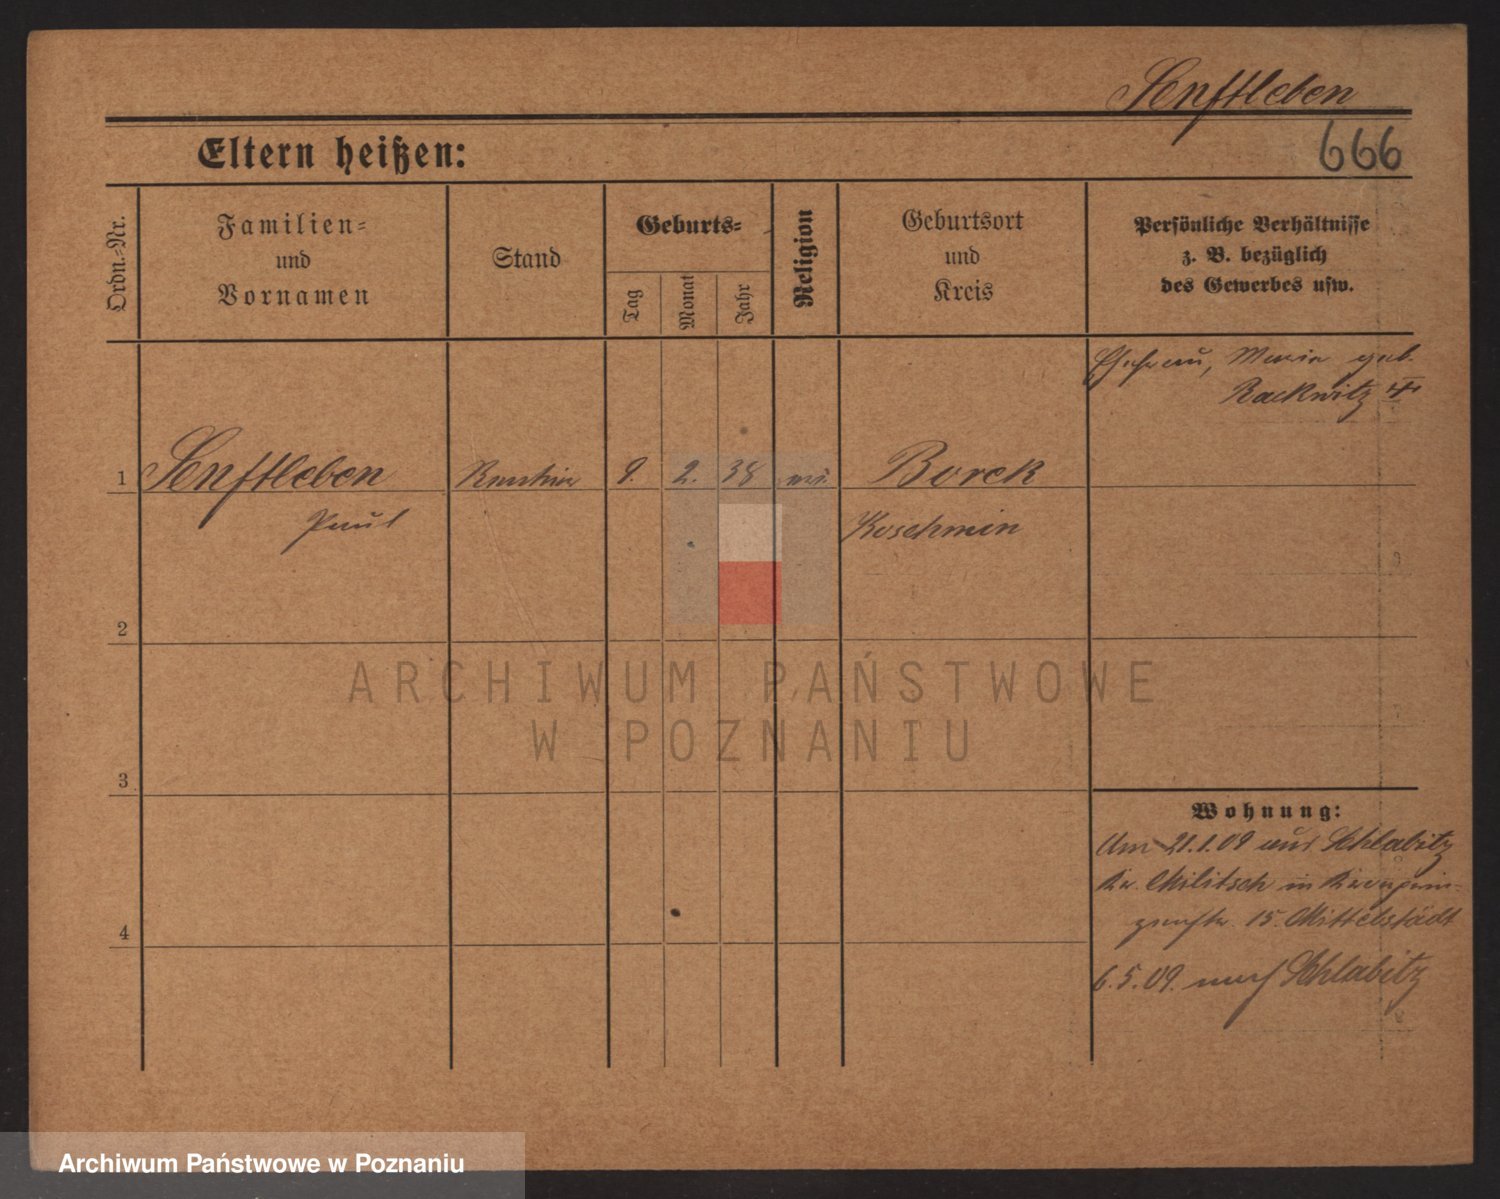 Senftleben
666
Eltern heißen:
Ordn.=Nr.
Familien=
und
Vornamen
Stand
Geburts=
Tag
Monat
Jahr
Religion
Geburtsort
und
Kreis
Persönliche Verhältnisse
z. B. bezüglich
des Gewerbes usw.
Ehefrau, Maria geb.
Rackwitz
1 Senftleben Rentier 9. 2. 38 Borek
Paul Koschmin
2
ARCHIWUM PAŃSTWOWE
W POZNANIU
3
Wohnung:
Am 21.1.09 aus Schlabitz
Kr. Militsch in Kronprin-
zenstr. 15. Mittelstädt
4
6.5.09. nach Schlabitz
Archiwum Państwowe w Poznaniu